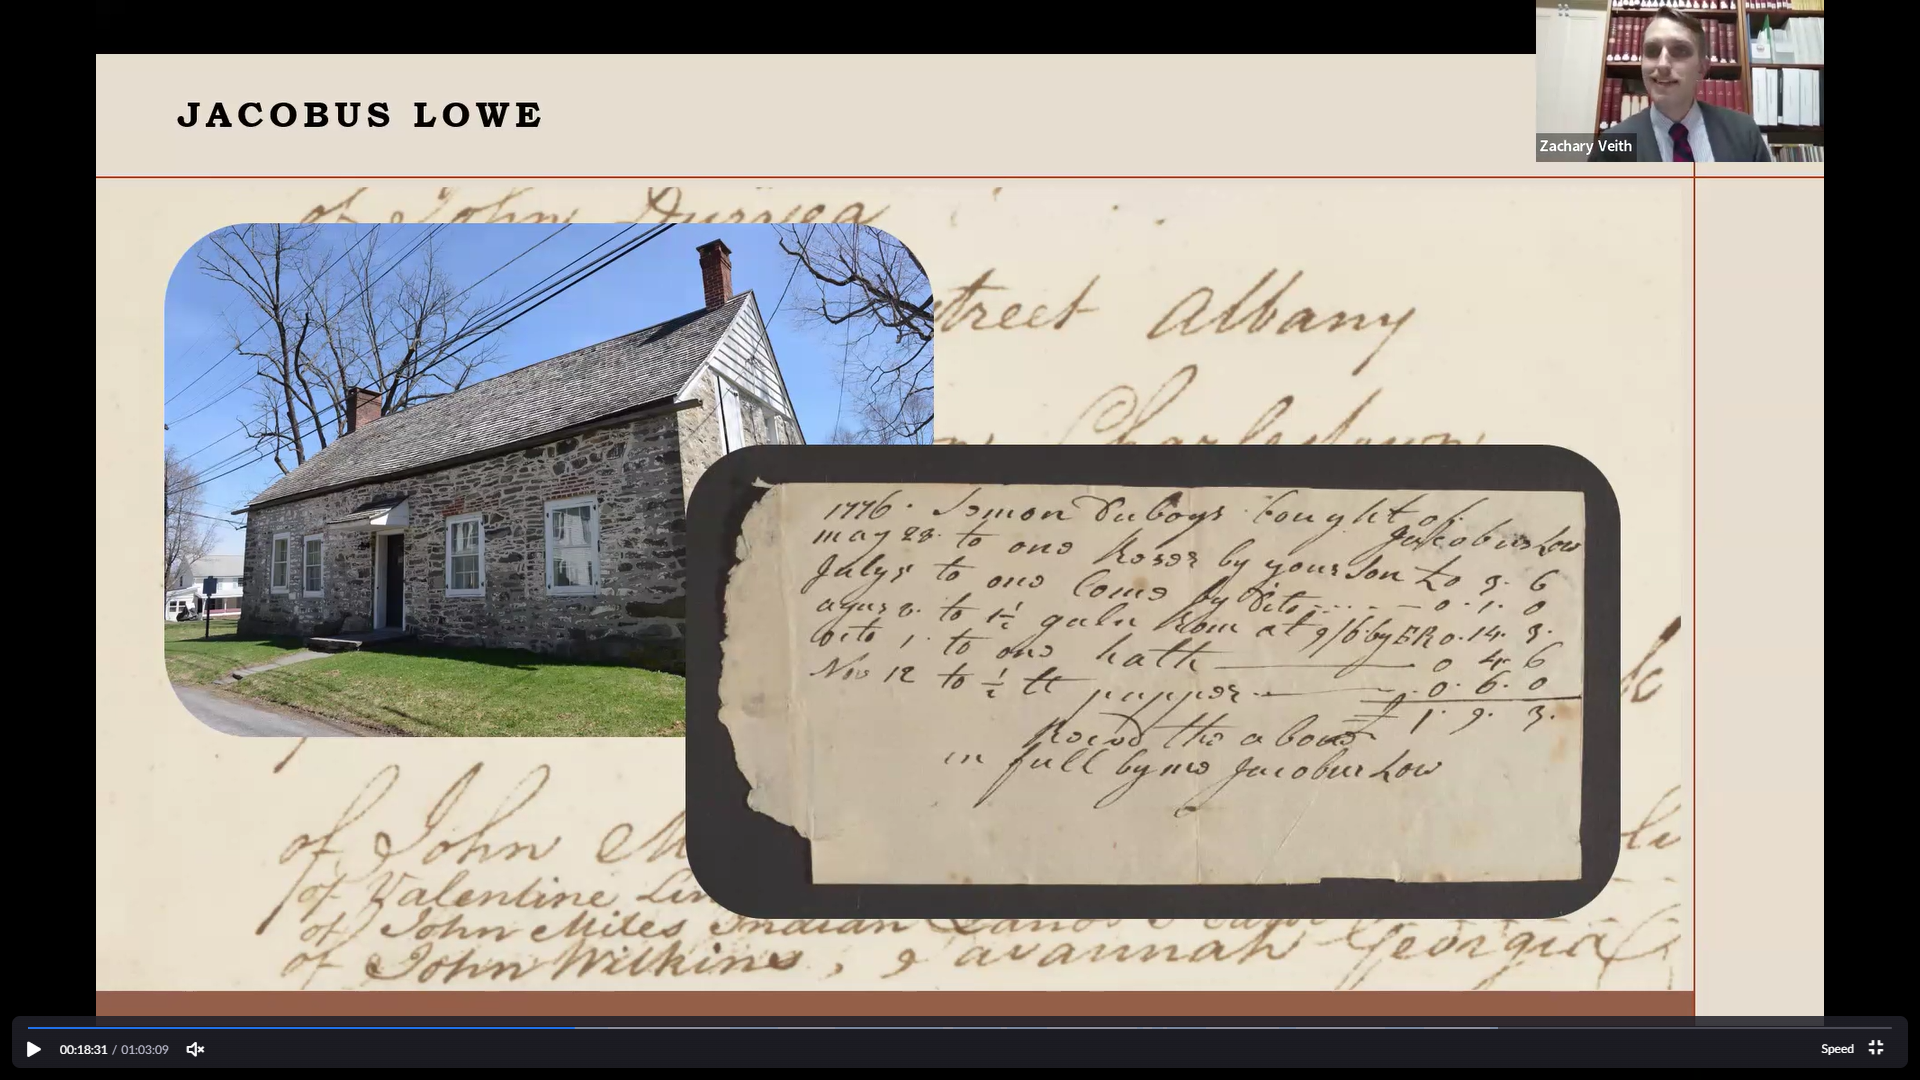 JACOBUS LOWE
Zachary Veith
of John Durryea
treet Albany
Charlestown
1776. Semon Duboys bought of
Jacobus Low
may 28. to one Rosor by your Son £0 3. 6
July 5 to one Come by Dito 0. 1. 0
agus 2. to 1½ galn Rom at 9/6 by ER 0. 14. 3.
Octo 1. to one hatt 0 4. 6
Nov 12 to ½ lt pepper 0. 6. 0
£ 1. 9. 3.
Receid the above
in full by me Jacobus Low
of John M
of Valentine Lin
of John Miles Indian Land
of John Wilkins, Savannah Georgia
00:18:31 / 01:03:09
Speed